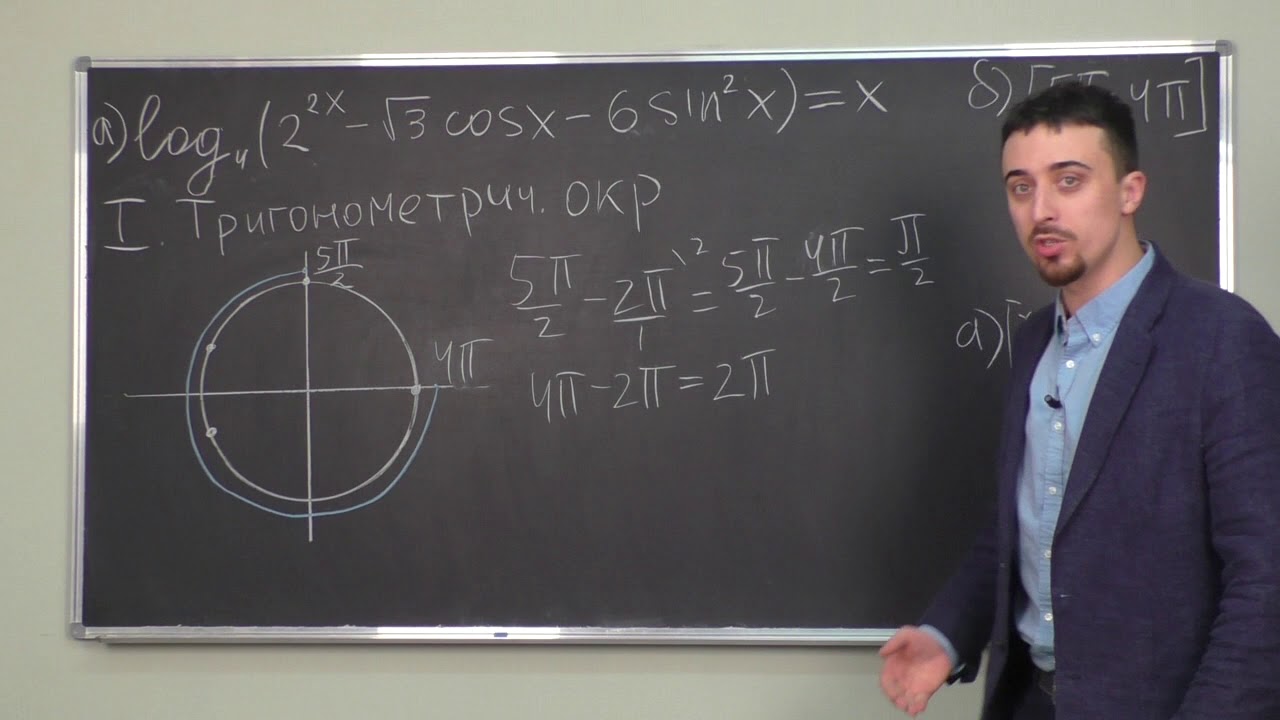 а) log₄(2²ˣ − √3 cosx − 6 sin²x) = x
б) [5π/2 4π]
I. Тригонометрич. окр
5π/2
5π/2 − 2π/1 \² = 5π/2 − 4π/2 = π/2
4π
4π − 2π = 2π
а) [